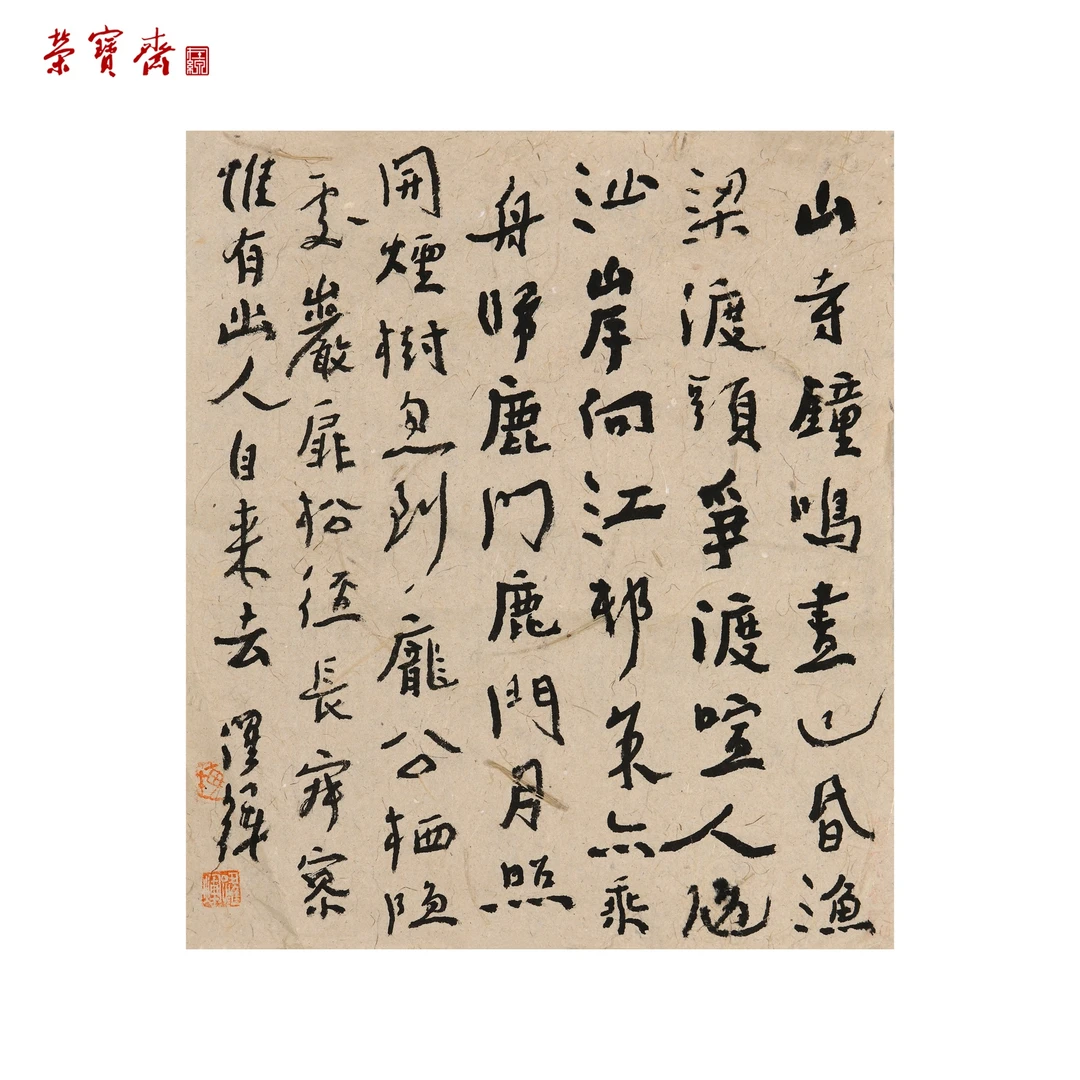 榮寶齋
山寺鐘鳴晝已昏漁
梁渡頭爭渡喧人隨
沙岸向江邨余亦乘
舟歸鹿門鹿門月照
開煙樹忽到龐公栖隱
處巖扉松徑長寂寥
惟有幽人自来去